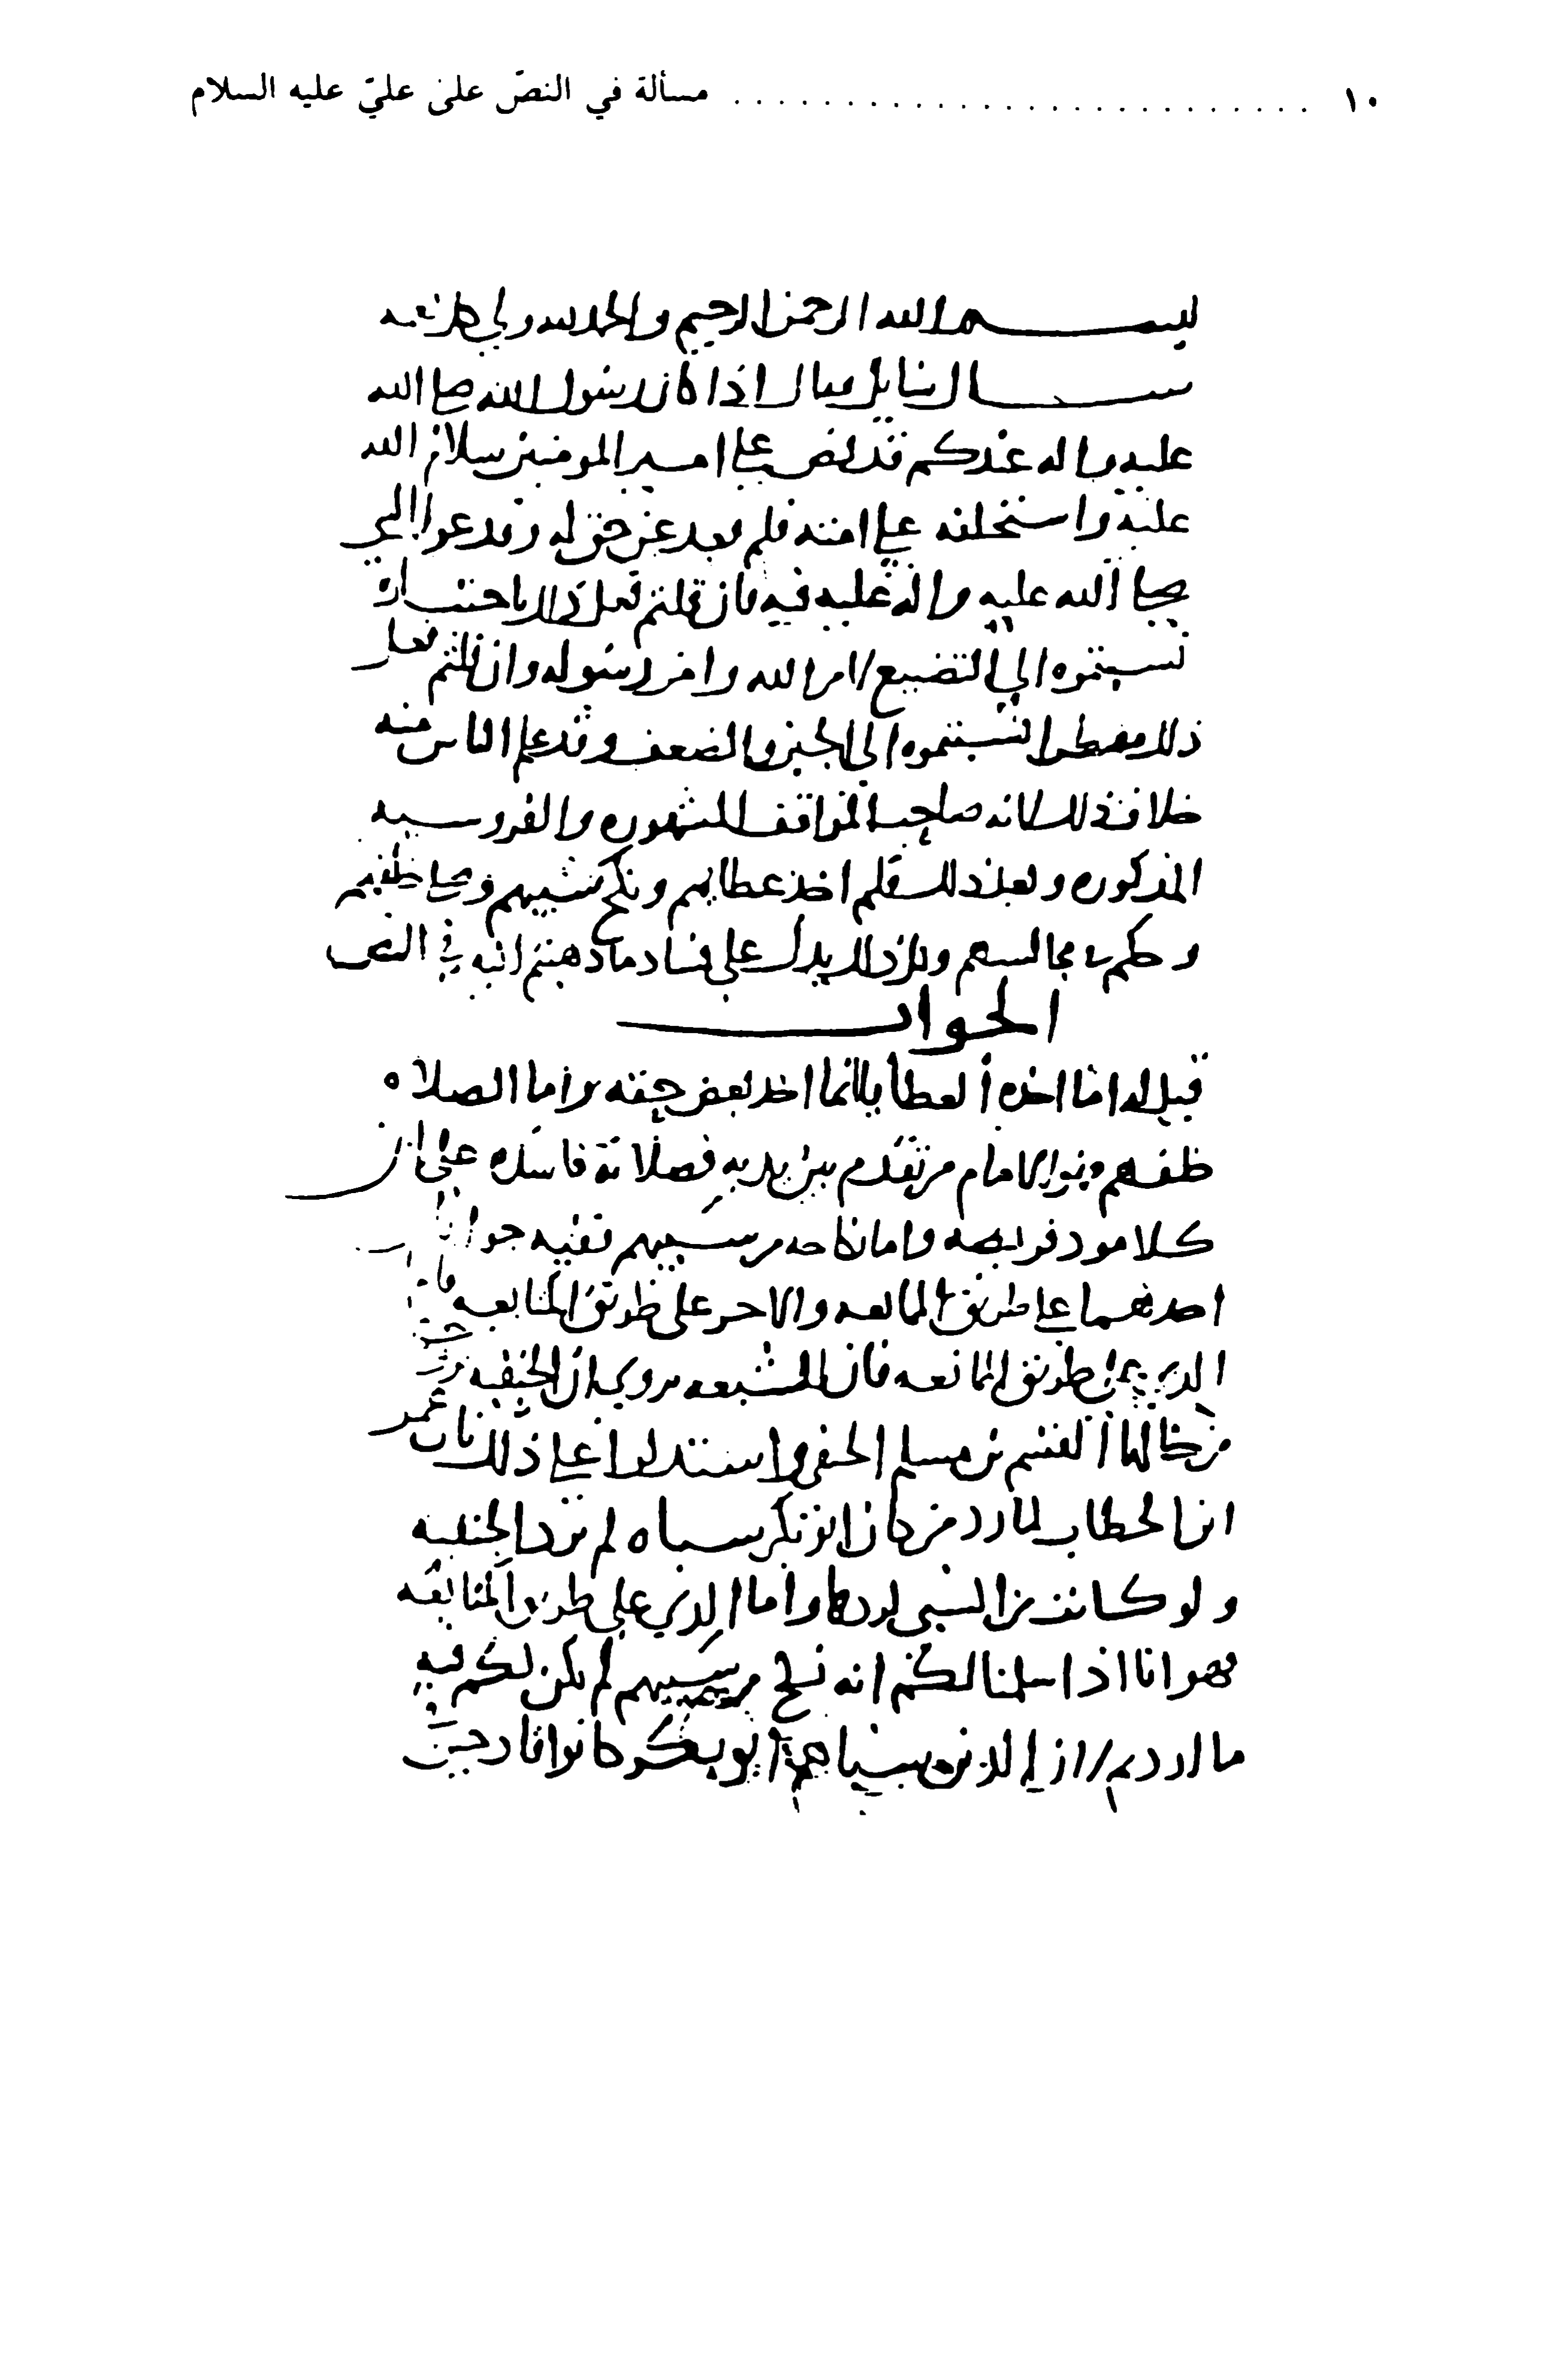 ١٠ . . . . . . . . . . . . . . . . . . . . . . . . . . مسألة في النصّ علىٰ عليّ عليه السلام
بسم الله الرحمن الرحيم والحمد لله ولي كل نعمه
سال سايل فقال اذا كان رسول الله صلى الله
عليه واله عندكم قد نص على امير المومنين سلام الله
عليه واستخلفه على امته فلم قعد عن حق له وقد عوا النبي
صلى الله عليه واله عليه فيه فان قلتم فعل ذلك باختياره
نسبتموه الي التضييع لامر الله وامر رسوله وان قلتم فعل
ذلك مضطرا نسبتموه الى الجبن والضعف وقد علم الناس منه
خلاف ذلك لانه صاحب المواقف المشهوره والفروسيه
المذكوره وبعد ذلك فلم اخذ عطاياهم ونكح سبيهم وصلى خلفهم
وحكم في مجالسهم وكل ذلك يدل على فساد ما ذهبتم اليه في النص
الجواب
قيل له اما اخذه العطا فانما اخذ بعض حقه واما الصلاه
خلفهم فهو الامام من تقدم بين يديه فصلاته فاسده على ان
كلا مود فريضه واما نكاحه من سبيهم ففيه جوابان
احدهما على طريق الممانعه والاخر على طريق المتابعه فاما
الذي على طريق الممانعه فان الشيعه تروي ان الحنفيه
من خالها القسم بن مسلم الحنفي واستدلوا على ذلك بان عمر
ابن الخطاب لما رد من كان ابو بكر سباه لم يرد الحنفيه
ولو كانت من السبي لردها واما الذي على طريق المتابعه
فهو انا اذا سلمنا لكم انه نكح من سبيهم لم يكن لكم فيه
ما اردتم لان الذين سباهم ابو بكر كانوا قادحين